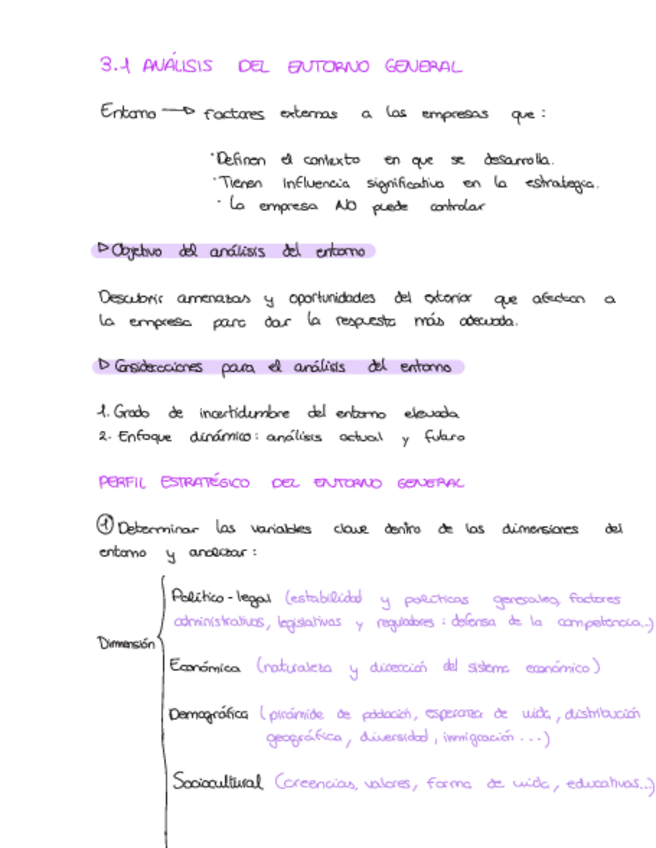 3.1 ANÁLISIS DEL ENTORNO GENERAL
Entorno → factores externos a las empresas que :
· Definen el contexto en que se desarrolla.
· Tienen influencia significativa en la estrategia.
· La empresa NO puede controlar
▷ Objetivo del análisis del entorno
Descubrir amenazas y oportunidades del exterior que afectan a
la empresa para dar la respuesta más adecuada.
▷ Consideraciones para el análisis del entorno
1. Grado de incertidumbre del entorno elevada
2. Enfoque dinámico: análisis actual y futuro
PERFIL ESTRATÉGICO DEL ENTORNO GENERAL
① Determinar las variables clave dentro de las dimensiones del
entorno y analizar :
Dimensión
Político-legal (estabilidad y políticas generales, factores
administrativos, legislativas y reguladores: defensa de la competencia..)
Económica (naturaleza y dirección del sistema económico)
Demográfica (pirámide de población, esperanza de vida, distribución
geográfica, diversidad, inmigración ...)
Sociocultural (creencias, valores, forma de vida, educativas...)